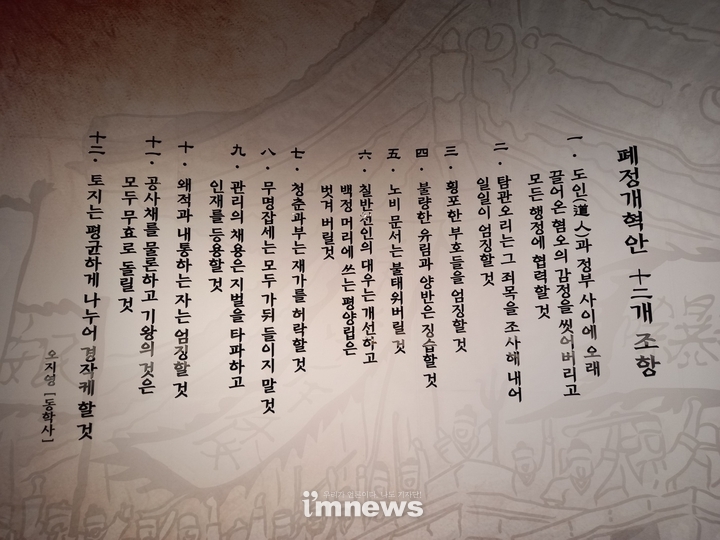 폐정개혁안 十二개 조항
一. 도인(道人)과 정부 사이에 오래
끌어온 혐오의 감정을 씻어버리고
모든 행정에 협력할 것
二. 탐관오리는 그 죄목을 조사해 내어
일일이 엄징할 것
三. 횡포한 부호들을 엄징할 것
四. 불량한 유림과 양반은 징습할 것
五. 노비 문서는 불태워버릴 것
六. 칠반천인의 대우는 개선하고
백정 머리에 쓰는 평양립은
벗겨 버릴것
七. 청춘과부는 재가를 허락할 것
八. 무명잡세는 모두 가둬 들이지 말 것
九. 관리의 채용은 지벌을 타파하고
인재를 등용할 것
十. 왜적과 내통하는 자는 엄징할 것
十一. 공사채를 물론하고 기왕의 것은
모두 무효로 돌릴 것
十二. 토지는 평균하게 나누어 경작케 할 것
오지영 [동학사]
i'mnews